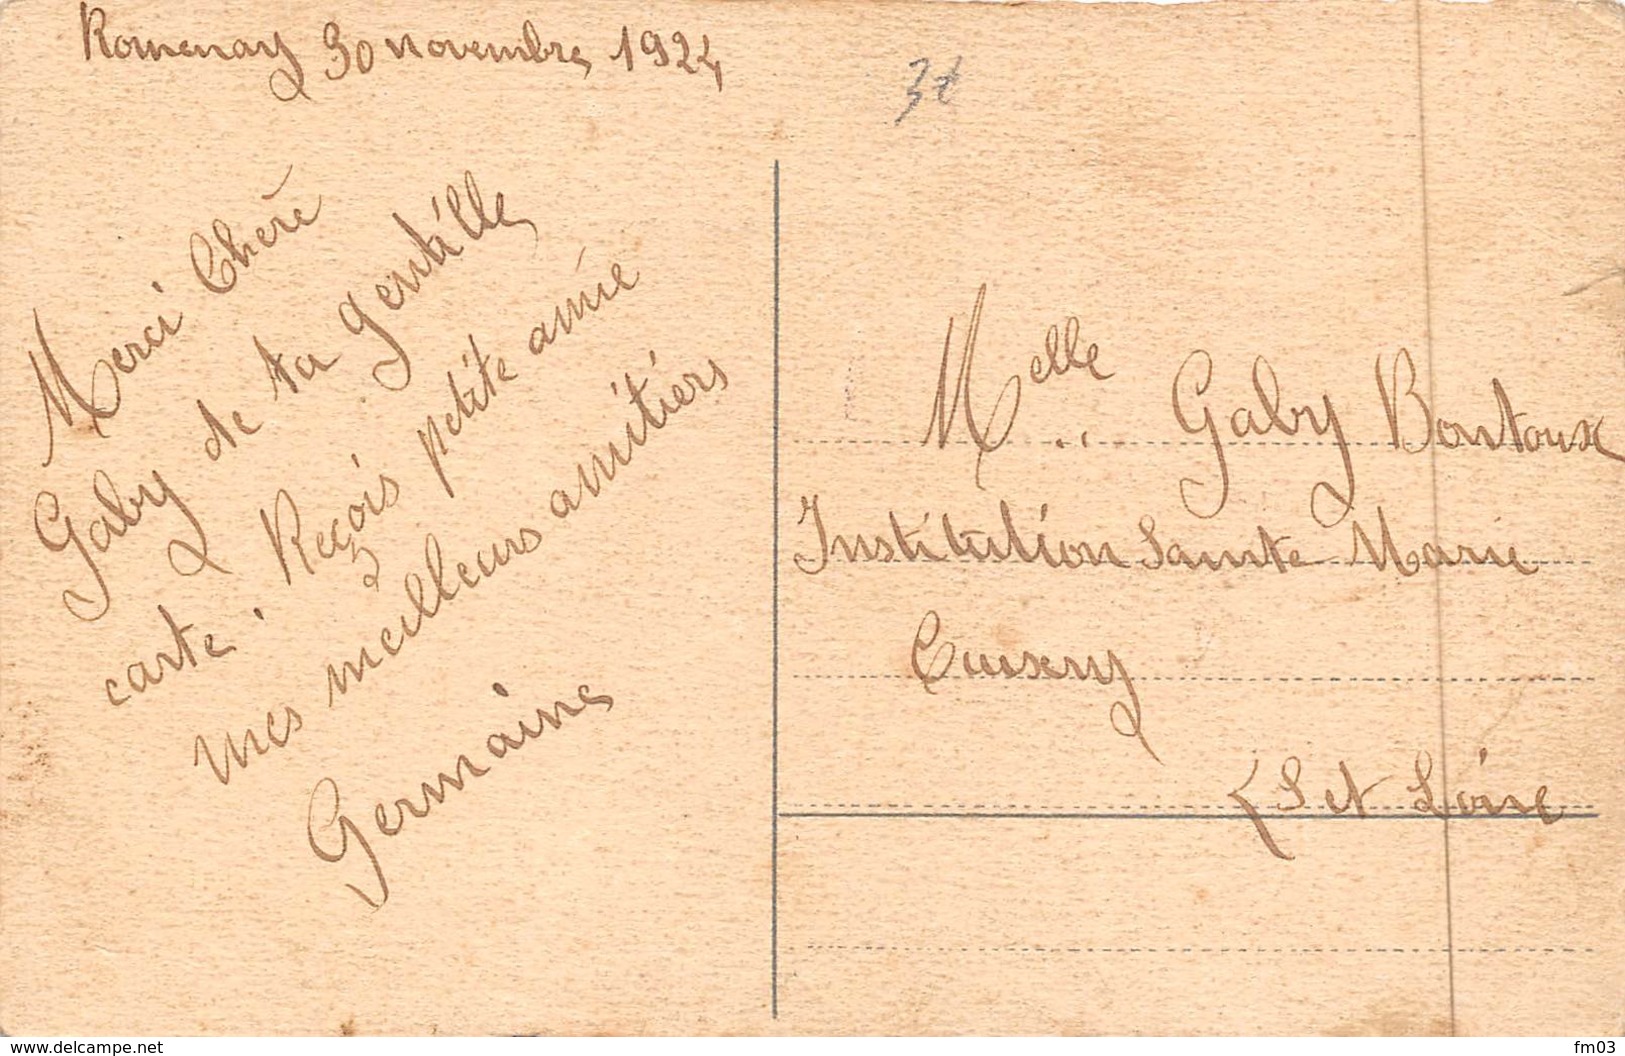 Romenay 30 novembre 1924
3t
Merci Chère
Gaby de ta gentille
carte. Reçois petite amie
mes meilleurs amitiers
Germaine
Melle Gaby Bontoux
Institution Sainte Marie
Cuisery
S et Loire
www.delcampe.net
fm03